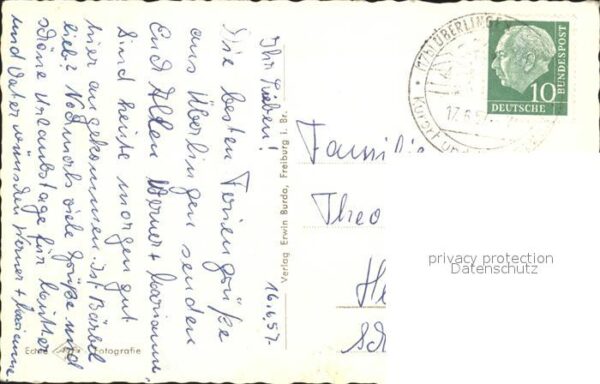 16.6.57.
Ihr Lieben!
Die besten Feriengrüße
aus Überlingen senden
Euch Allen Werner + Marianne,
Sind heute morgen gut
hier angekommen. Ist Bärbel
lieb? Nochmals viele Grüße und
schöne Urlaubstage für Mutter
und Vater wünschen Werner + Marianne
Echte Fotografie
Verlag Erwin Burda, Freiburg i. Br.
Familie
Theo
(17b) ÜBERLINGEN
17.6.57
10
DEUTSCHE
BUNDESPOST
privacy protection
Datenschutz